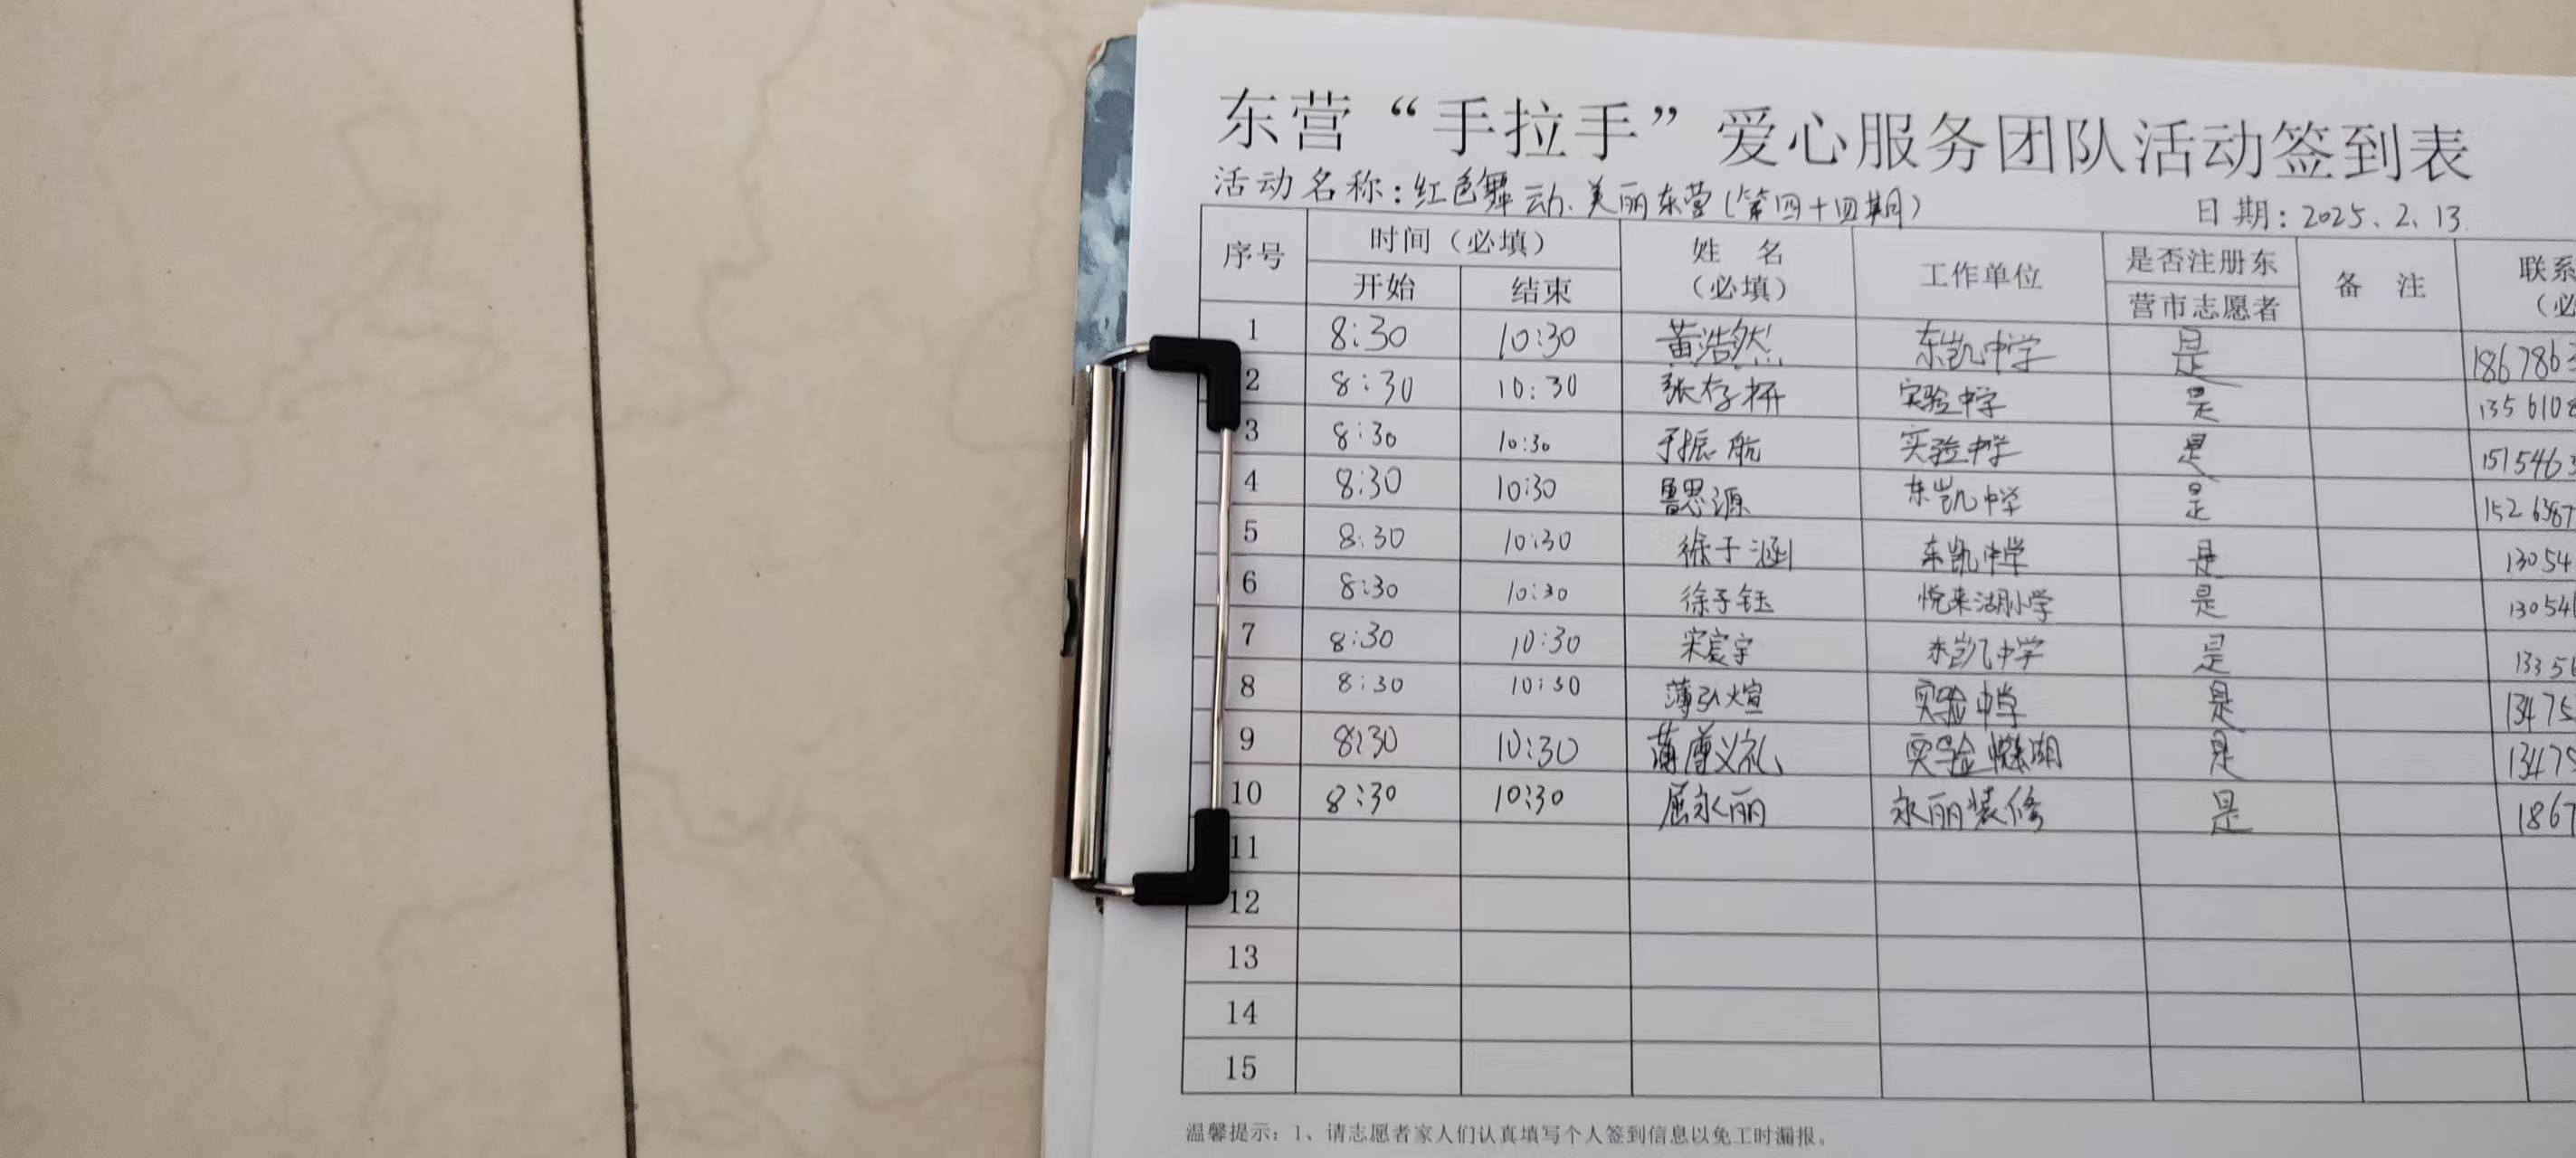 东营“手拉手”爱心服务团队活动签到表
活动名称：红色舞动.美丽东营（第四十四期） 日期：2025.2.13.
序号 时间（必填） 姓 名 工作单位 是否注册东 备 注 联系
开始 结束 （必填） 营市志愿者 （必
1 8:30 10:30 黄浩然 东凯中学 是 186786
2 8:30 10:30 张存妍 实验中学 是 135610
3 8:30 10:30 于振航 实验中学 是 1515463
4 8:30 10:30 鲁思源 东凯中学 是 1526387
5 8:30 10:30 徐子涵 东凯中学 是 13054
6 8:30 10:30 徐子钰 悦来湖小学 是 130541
7 8:30 10:30 宋宸宇 东凯中学 是 13356
8 8:30 10:30 薄弘煊 实验中学 是 13475
9 8:30 10:30 薄尊义礼 实验 是 13475
10 8:30 10:30 屈永丽 永丽装修 是 1867
11
12
13
14
15
温馨提示：1、请志愿者家人们认真填写个人签到信息以免工时漏报。